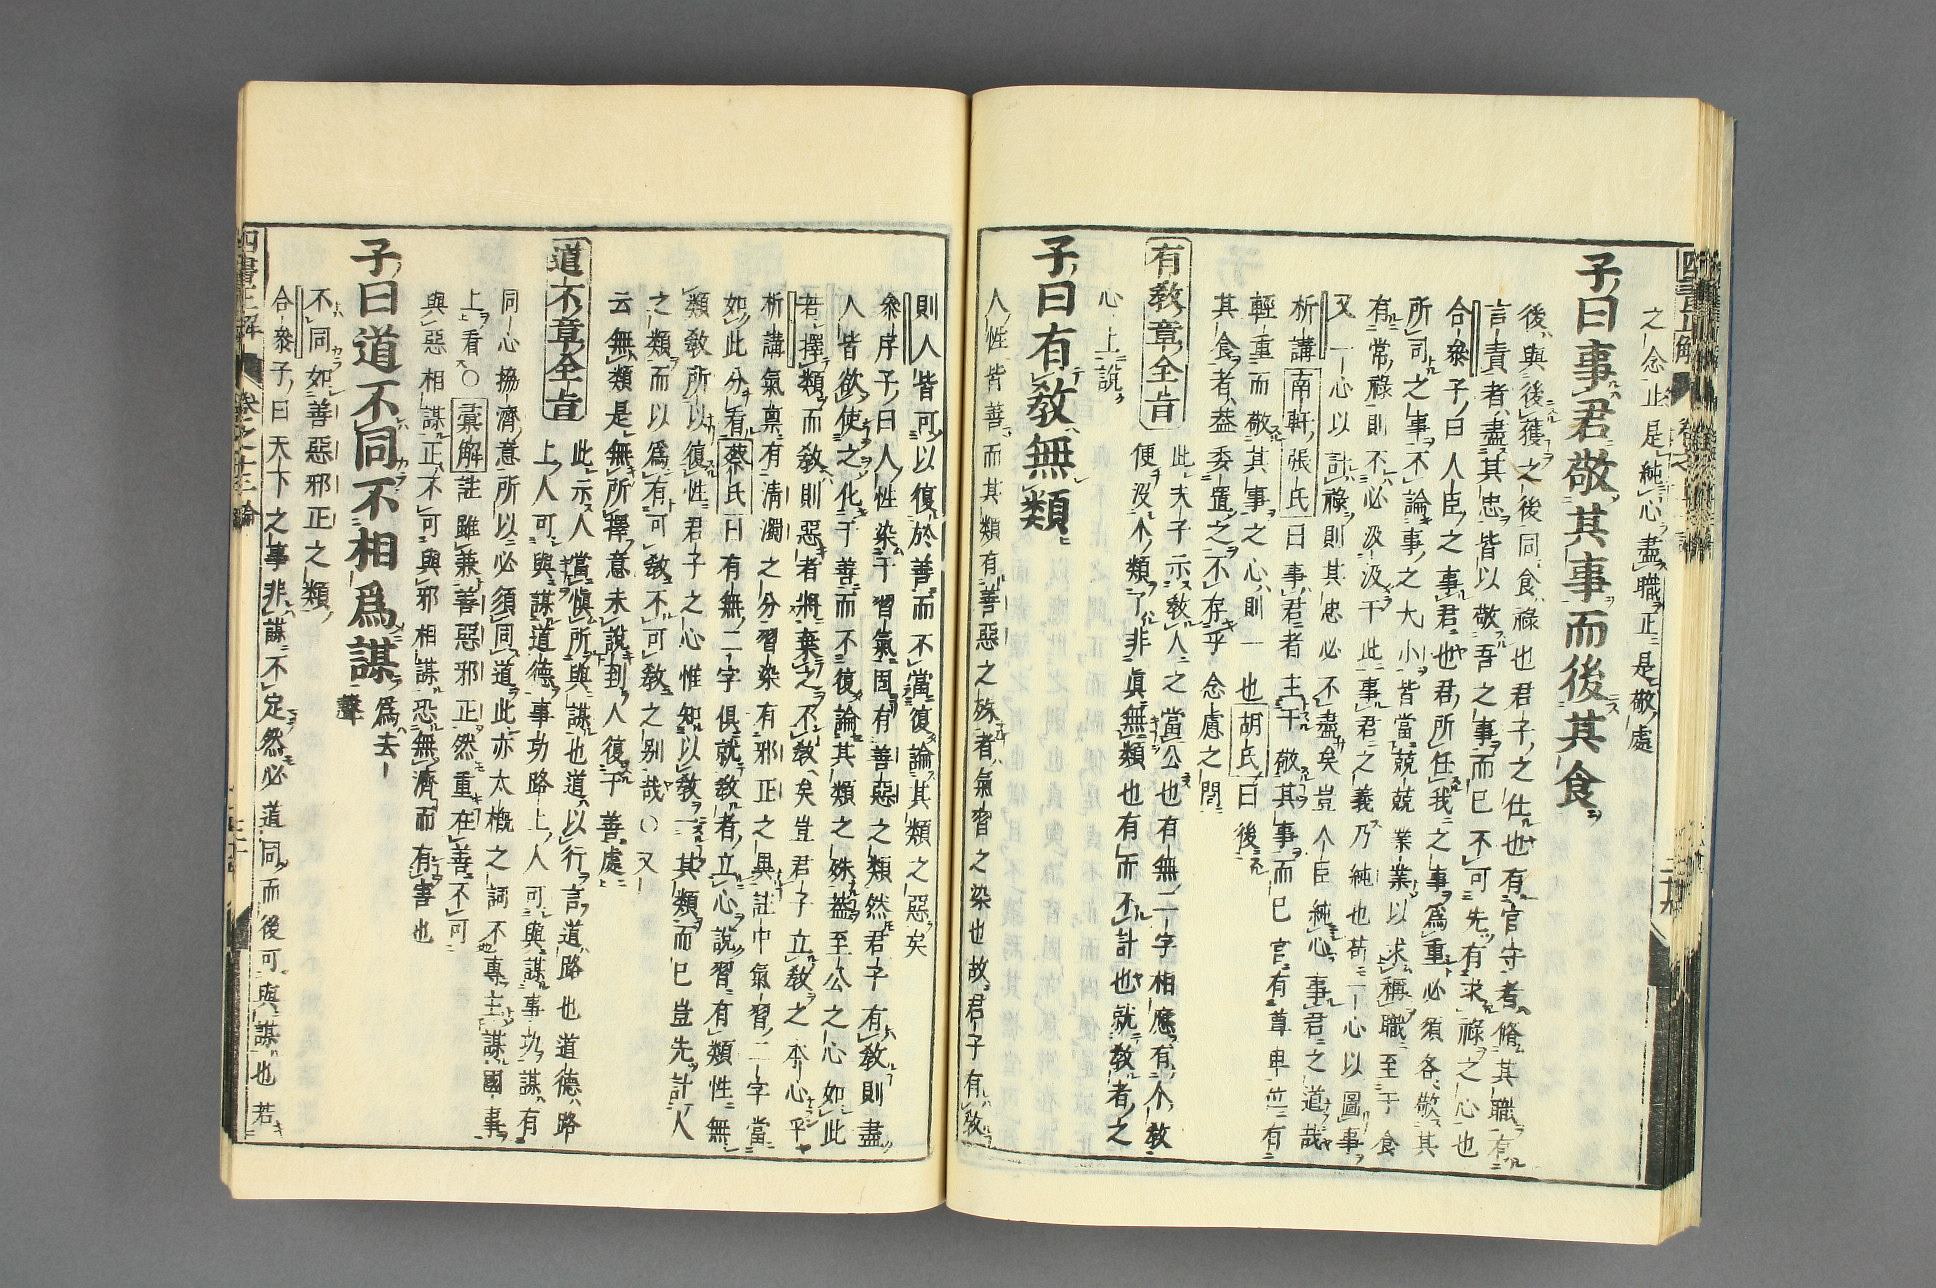 之念止是純心盡職正是敬處
子曰事君敬其事而後其食
後與後獲之後同食祿也君子之仕也有官守者脩其職有
言責者盡其忠皆以敬吾之事而已不可先有求祿之心也
合參子曰人臣之事君也君所任我之事爲重必須各敬其
所司之事不論事之大小皆當兢兢業業以求稱職至于食
有常祿則不必汲汲于此事君之義乃純也苟一心以圖事
又一心以計祿則其忠必不盡矣豈人臣純心事君之道哉
析講南軒張氏曰事君者主于敬其事而已官有尊卑並有
輕重而敬其事之心則一也胡氏曰後
其食者益委置之不存乎念慮之間
有敎章全旨
此夫子示敎人之當公也有無二字相應有不敎
便沒不類了非眞無類也有而不計也就敎者之
心上說
子曰有敎無類
人性皆善而其類有善惡之殊者氣習之染也故君子有敎
則人皆可以復於善而不當復論其類之惡矣
參序子曰人性染于習氣固有善惡之類然君子有敎則盡
人皆欲使之化于善而不復論其類之殊蓋至公之心如此
若擇類而敎則惡者將棄之不敎矣豈君子立敎之本心乎
析講氣禀有淸濁之分習染有邪正之異註中氣習二字當
如此分看蔡氏曰有無二字俱就敎者立心說習有類性無
類敎所以復性君子之心惟知以敎一其類而已豈先計人
之類而以爲有可敎不可敎之別哉〇又
云無類是無所擇意未說到人復于善處
道不章全旨
此示人當愼所與謀也道以行言道路也道德路
上人可與謀道德事功路上人可與謀事功謀有
同心協濟意所以必須同道此亦太槪之詞不專主謀國事
上看〇彙解註雖兼善惡邪正然重在善不可
與惡相謀正不可與邪相謀恐無濟而有害也
子曰道不同不相爲謀
爲去聲
不同如善惡邪正之類
合參子曰天下之事非謀不定然必道同而後可與謀也若
四書正解
卷之十三論